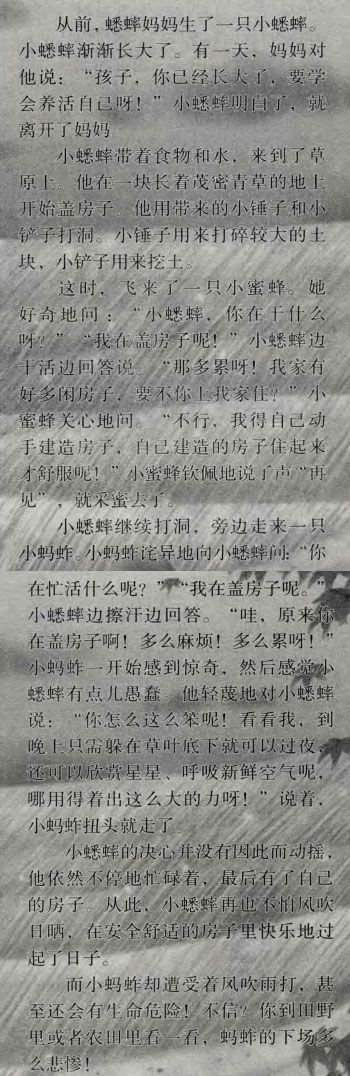 从前，蟋蟀妈妈生了一只小蟋蟀。
小蟋蟀渐渐长大了。有一天，妈妈对
他说：“孩子，你已经长大了，要学
会养活自己呀！”小蟋蟀明白了，就
离开了妈妈。
小蟋蟀带着食物和水，来到了草
原上。他在一块长着茂密青草的地上
开始盖房子。他用带来的小锤子和小
铲子打洞。小锤子用来打碎较大的土
块，小铲子用来挖土。
这时，飞来了一只小蜜蜂。她
好奇地问：“小蟋蟀，你在干什么
呀？”“我在盖房子呢！”小蟋蟀边
干活边回答说。“那多累呀！我家有
好多闲房子，要不你上我家住？”小
蜜蜂关心地问。“不行，我得自己动
手建造房子，自己建造的房子住起来
才舒服呢！”小蜜蜂钦佩地说了声“再
见”，就采蜜去了。
小蟋蟀继续打洞，旁边走来一只
小蚂蚱。小蚂蚱诧异地向小蟋蟀问：“你
在忙活什么呢？”“我在盖房子呢。”
小蟋蟀边擦汗边回答。“哇，原来你
在盖房子啊！多么麻烦！多么累呀！”
小蚂蚱一开始感到惊奇，然后感觉小
蟋蟀有点儿愚蠢。他轻蔑地对小蟋蟀
说：“你怎么这么笨呢！看看我，到
晚上只需躲在草叶底下就可以过夜，
还可以欣赏星星、呼吸新鲜空气呢，
哪用得着出这么大的力呀！”说着，
小蚂蚱扭头就走了。
小蟋蟀的决心并没有因此而动摇，
他依然不停地忙碌着，最后有了自己
的房子。从此，小蟋蟀再也不怕风吹
日晒，在安全舒适的房子里快乐地过
起了日子。
而小蚂蚱却遭受着风吹雨打，甚
至还会有生命危险！不信？你到田野
里或者农田里看一看，蚂蚱的下场多
么悲惨！